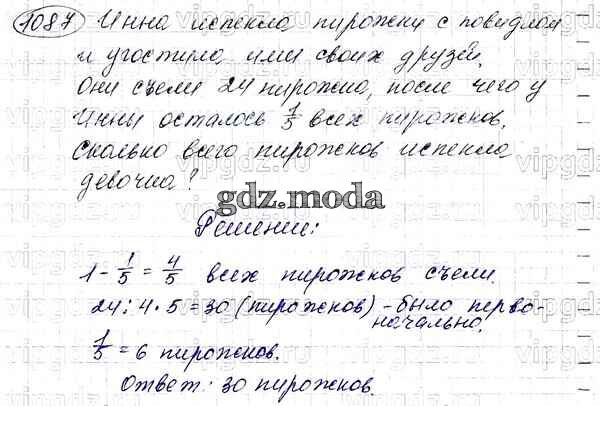 1087 Инна испекла пирожки с повидлом
и угостила ими своих друзей.
Они съели 24 пирожка, после чего у
Инны осталось 1/5 всех пирожков.
Сколько всего пирожков испекла
девочка?
gdz.moda
Решение:
1 - 1/5 = 4/5 всех пирожков съели.
24 : 4 · 5 = 30 (пирожков) - было перво-
начально.
1/5 = 6 пирожков.
Ответ: 30 пирожков.